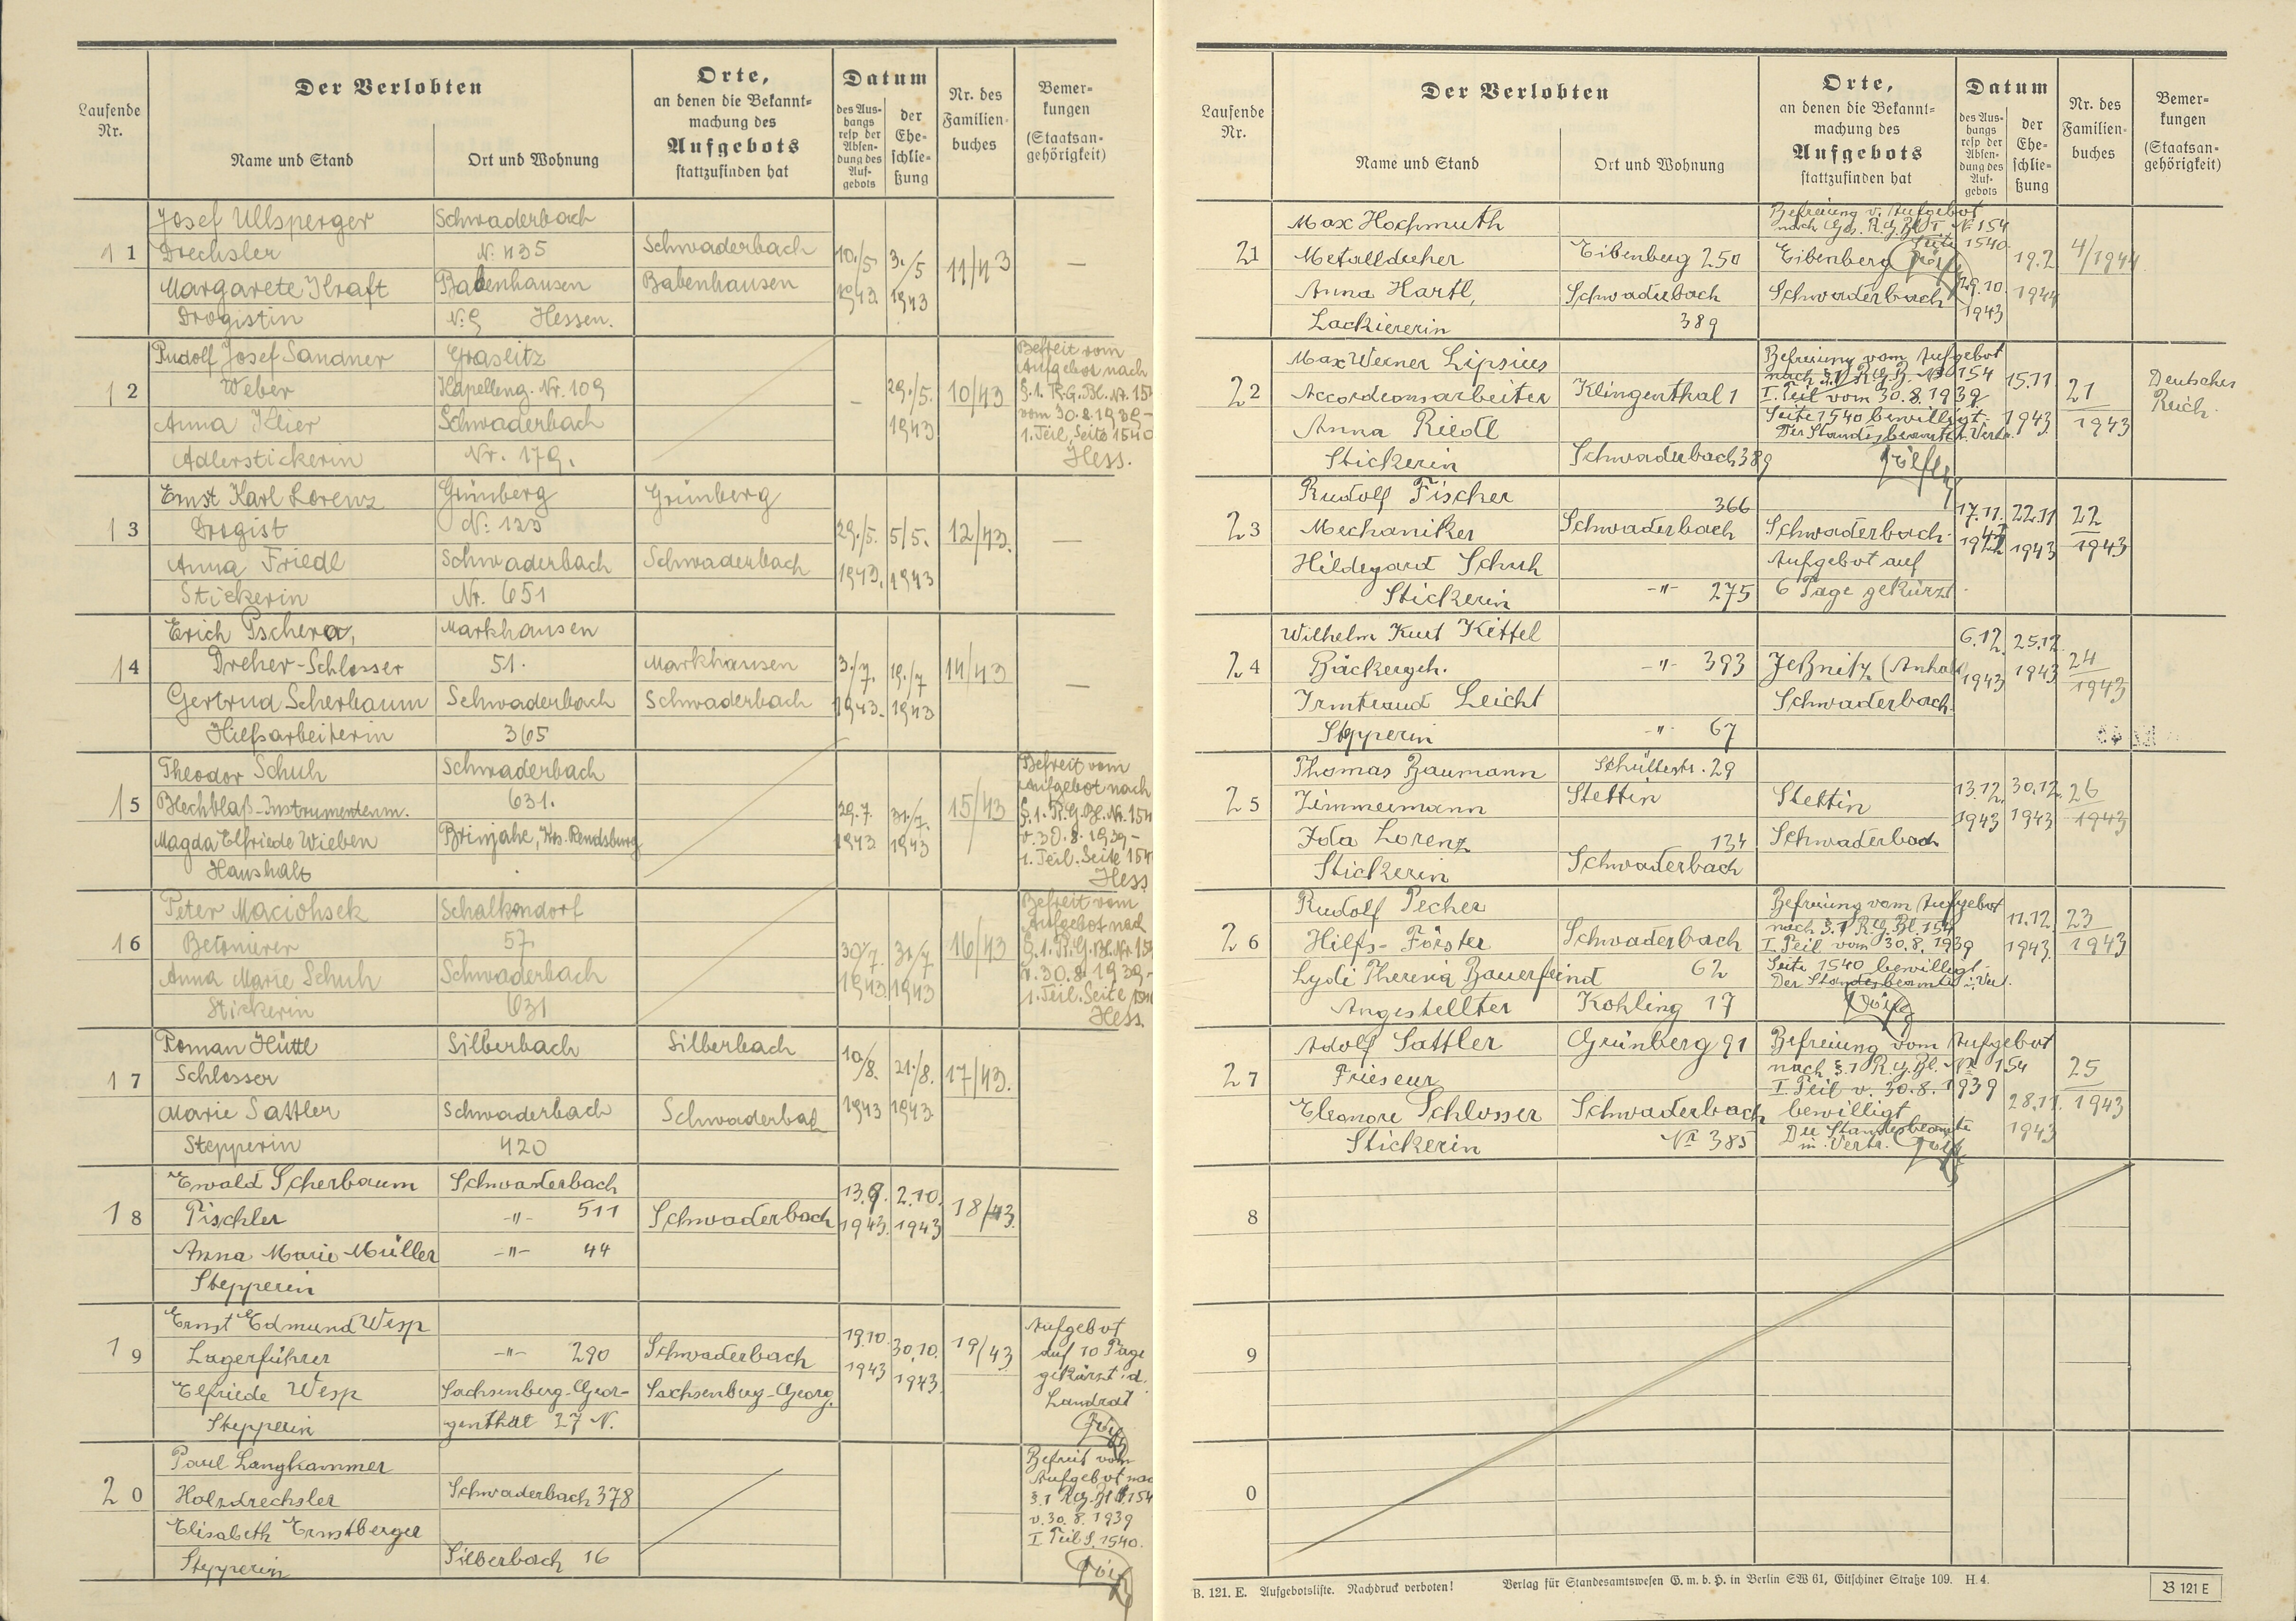 Laufende Nr.
Der Verlobten
Name und Stand
Ort und Wohnung
Orte,
an denen die Bekannt=
machung des
Aufgebots
stattzufinden hat
Datum
des Aus=
hangs
resp der
Absen=
dung des
Auf=
gebots
der
Ehe=
schlie=
ßung
Nr. des
Familien=
buches
Bemer=
kungen
(Staatsan=
gehörigkeit)
11
Josef Ullsperger Schwaderbach
Drechsler N: 435 Schwaderbach 10./5. 3./5 11/43 —
Margarete Kraft Babenhausen Babenhausen 1943 1943
Drogistin N: 9 Hessen.
12
Rudolf Josef Sandner Graslitz
Weber Kapelleng. Nr. 109 – 29./5. 10/43
Anna Klier Schwaderbach 1943
Adlerstickerin Nr. 179.
Befreit vom
Aufgebot nach
§.1. R.G.Bl. Nr. 154
vom 30.8.1939–
1. Teil, Seite 1540
Hess.
13
Ernst Karl Lorenz Grünberg Grünberg
Drogist N: 123 29./5. 5/5. 12/43. —
Anna Friedl Schwaderbach Schwaderbach 1943. 1943
Stickerin Nr. 651
14
Erich Pschera, Markhausen
Dreher-Schlosser 51. Markhausen 3./7. 19./7 14/43 —
Gertrud Scherbaum Schwaderbach Schwaderbach 1943. 1943
Hilfsarbeiterin 365
15
Theodor Schuh Schwaderbach
Blechblaß-Instrumentenm. 631. 29.7. 31./7. 15/43
Magda Elfriede Wieben Brinjahe, Krs. Rendsburg 1943 1943
Haushalt
Befreit vom
Aufgebot nach
§.1. R.G.Bl. Nr. 154
v. 30.8.1939–
1. Teil. Seite 154
Hess
16
Peter Maciohsek Schalkendorf
Betonierer 57. 30/7. 31/7 16/43
Anna Marie Schuh Schwaderbach 1943. 1943
Stickerin 631
Befreit vom
Aufgebot nach
§.1. R.G.Bl. Nr. 154
v. 30.8.1939–
1. Teil. Seite 1540
Hess.
17
Roman Hüttl Silberbach Silberbach
Schlosser 10/8. 21./8. 17/43.
Marie Sattler Schwaderbach Schwaderbach 1943 1943
Stepperin 420
18
Ewald Scherbaum Schwaderbach
Tischler -"- 511 Schwaderbach 13.9. 2.10. 18/43.
Anna Marie Müller -"- 44 1943. 1943
Stepperin
19
Ernst Edmund Wesp
Lagerführer -"- 290 Schwaderbach 19.10 30.10. 19/43
Elfriede Wesp Sachsenberg-Geor- Sachsenberg-Georg. 1943 1943.
Stepperin genthal 27 N.
Aufgebot
auf 10 Tage
gekürzt d.
Landrat
20
Paul Langhammer
Holzdrechsler Schwaderbach 378
Elisabeth Ernstberger
Stepperin Silberbach 16
Befreit vom
Aufgebot nach
§.1 R.G.Bl. I 154
v. 30.8.1939
I Teil S. 1540.
Laufende Nr.
Der Verlobten
Name und Stand
Ort und Wohnung
Orte,
an denen die Bekannt=
machung des
Aufgebots
stattzufinden hat
Datum
des Aus=
hangs
resp der
Absen=
dung des
Auf=
gebots
der
Ehe=
schlie=
ßung
Nr. des
Familien=
buches
Bemer=
kungen
(Staatsan=
gehörigkeit)
21
Max Hochmuth Befreiung v. Aufgebot
nach Ges. R.G.Bl. I. Nr. 154
Seite 1540
Metalldreher Eibenberg 250 Eibenberg 19.2 4/1944
Anna Hartl, Schwaderbach Schwaderbach 29.10. 1944
Lackiererin 389 1943
22
Max Werner Lipsius
Accordeonsarbeiter Klingenthal 1 15.11 21
Anna Riedl 1943 1943
Stickerin Schwaderbach 389
Befreiung vom Aufgebot
nach §.1 R.G.B. Nr 154
I. Teil vom 30.8.1939
Seite 1540 bewilligt
Der Standesbeamte i. Vertr.
Deutsches
Reich.
23
Rudolf Fischer 366
Mechaniker Schwaderbach Schwaderbach. 17.11. 22.11 22
Hildegard Schuh Aufgebot auf 1943 1943 1943
Stickerin -"- 275 6 Tage gekürzt
24
Wilhelm Kurt Kittel 6.12. 25.12.
Bäckergeh. -"- 393 Jeßnitz (Anhalt 1943 1943 24
Irmtraud Leicht Schwaderbach. 1943
Stepperin -"- 67
25
Thomas Baumann Schüttestr. 29
Zimmermann Stettin Stettin 13.12. 30.12. 26
Ida Lorenz 134 Schwaderbach 1943 1943 1943
Stickerin Schwaderbach
26
Rudolf Pecher
Hilfs-Förster Schwaderbach 11.12. 23
Lydi Theresia Bauerfeind 62 1943. 1943
Angestellter Kohling 17
Befreiung vom Aufgebot
nach §.1 R.G.Bl. 154
I. Teil vom 30.8.1939
Seite 1540 bewilligt
Der Standesbeamte i. Ver.
27
Adolf Sattler Grünberg 91
Frieseur 25
Eleonore Schlosser Schwaderbach 28.11. 1943
Stickerin Nr 385 1943
Befreiung vom Aufgebot
nach §.1 R.G.Bl. Nr 154
I. Teil v. 30.8.1939
bewilligt
Der Standesbeamte
in Vertr.
8
9
0
B. 121. E. Aufgebotsliste. Nachdruck verboten! Verlag für Standesamtswesen G. m. b. H. in Berlin SW 61, Gitschiner Straße 109. H. 4.
B 121 E